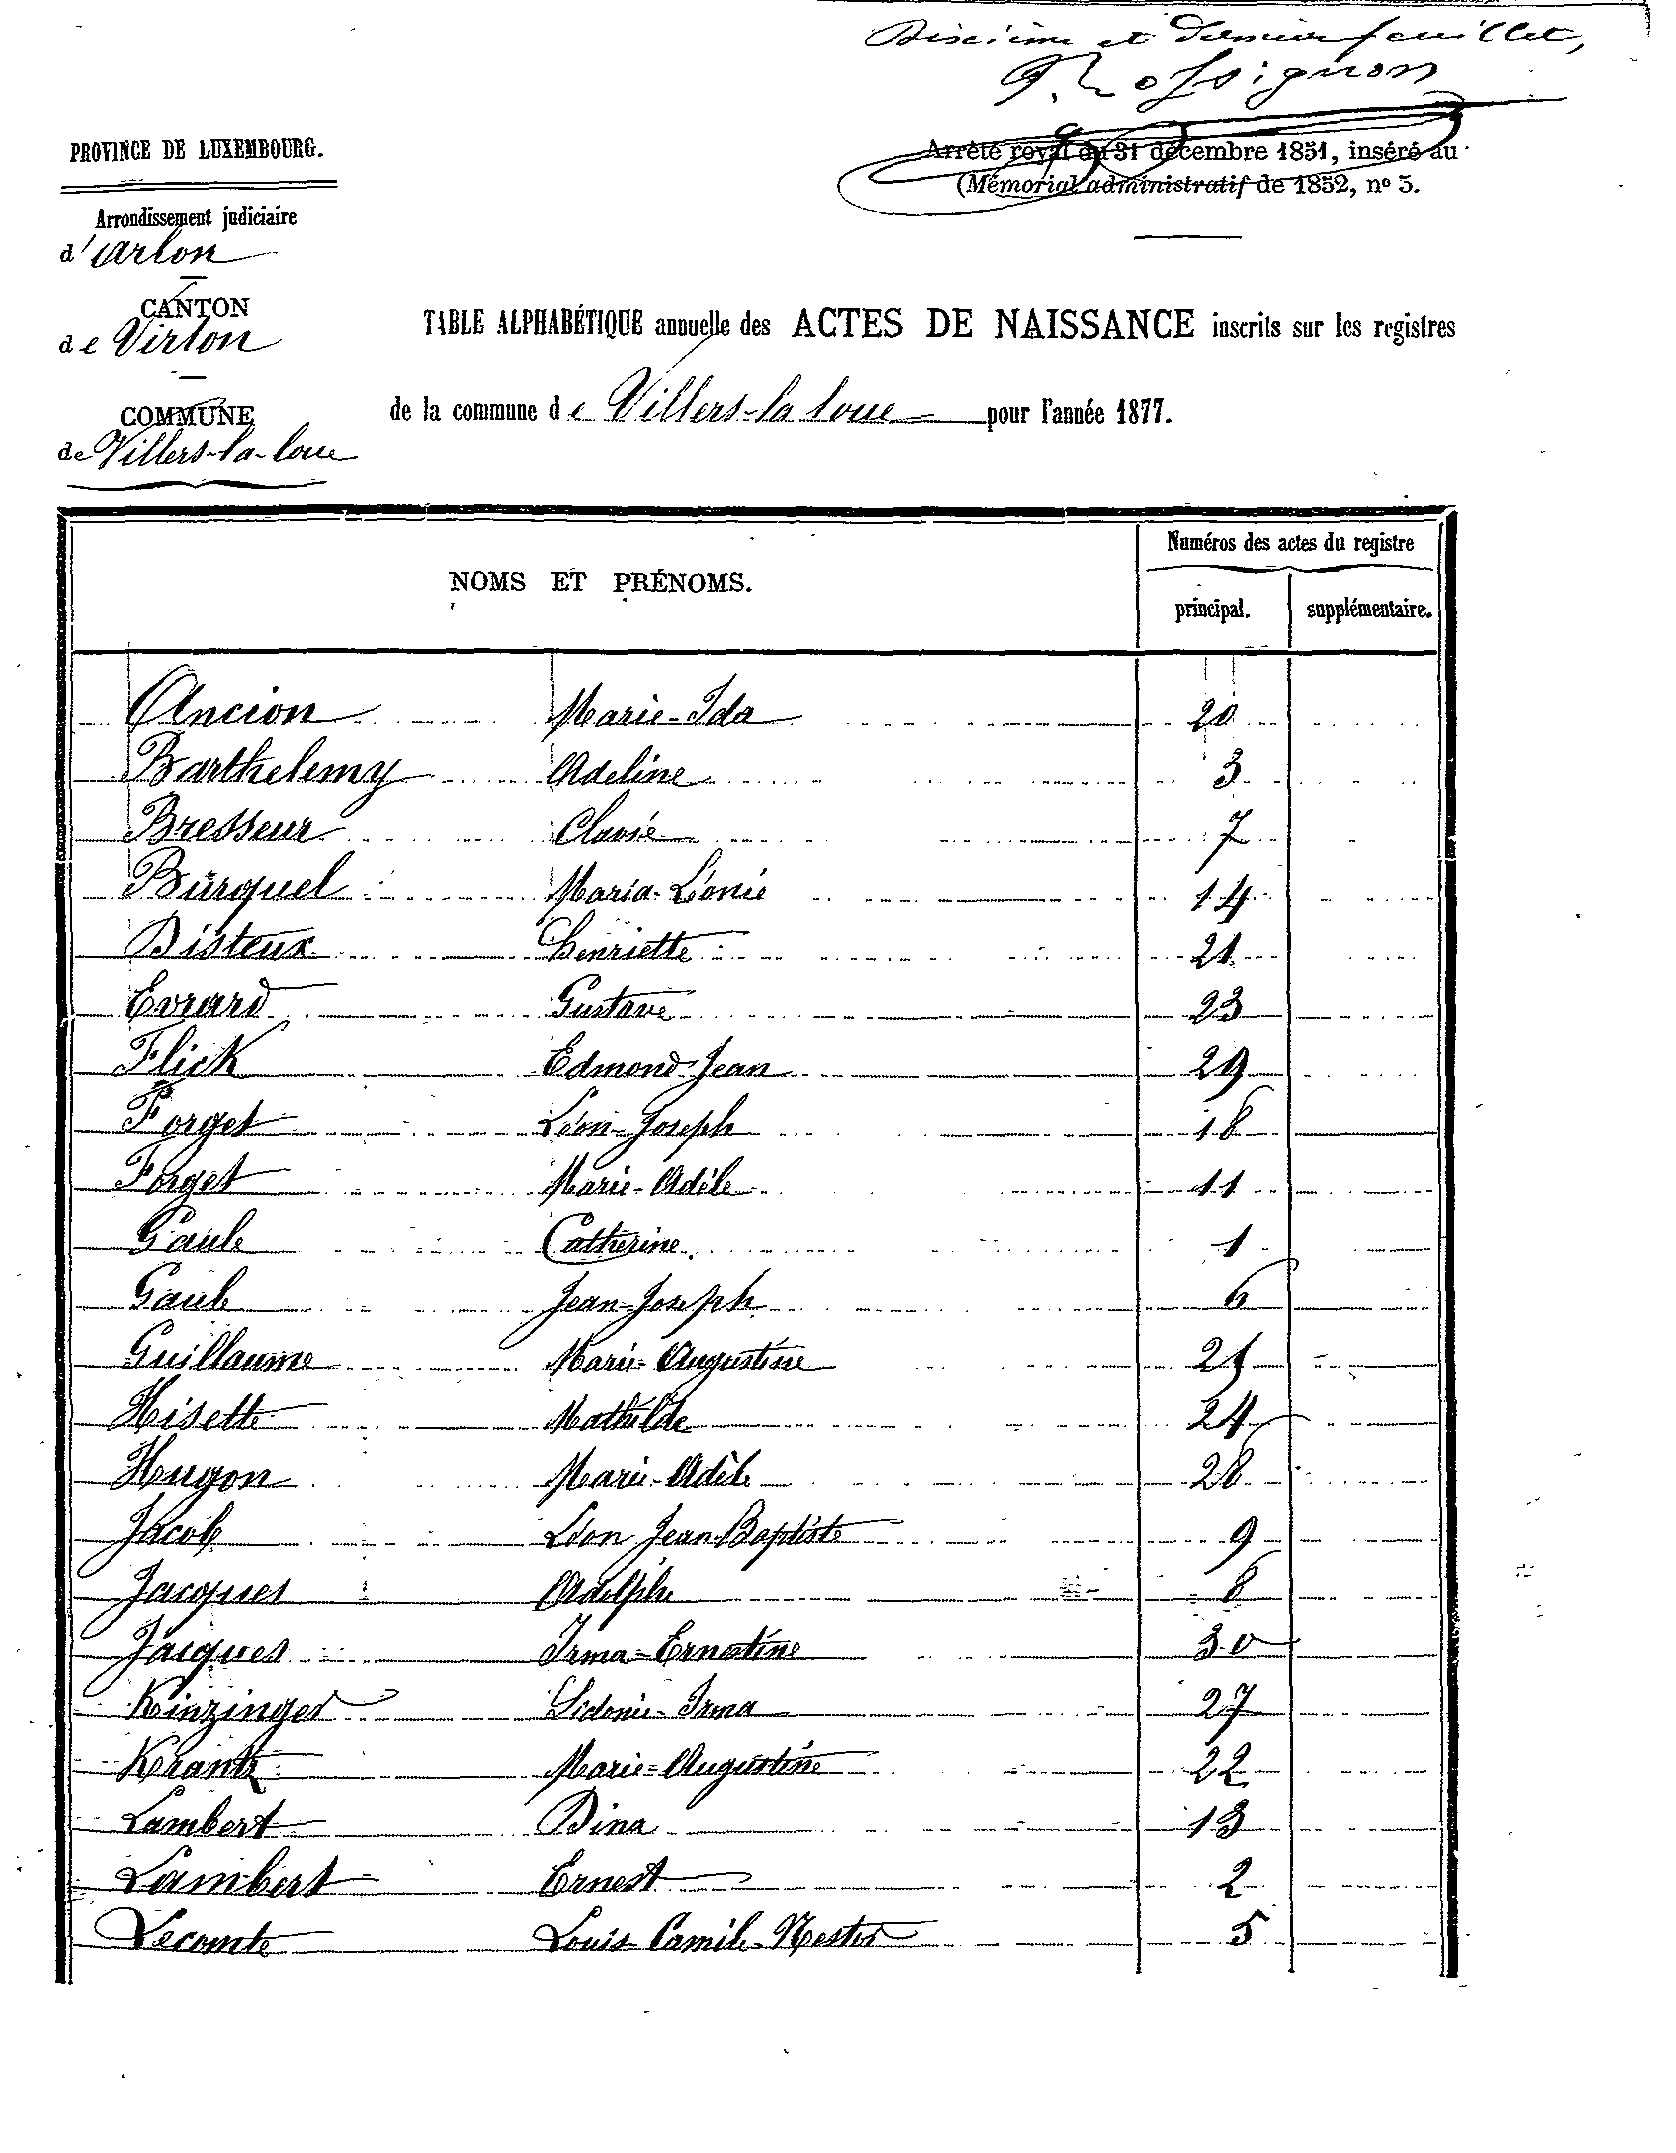 Dixième et dernier feuillet,
Rossignon
PROVINCE DE LUXEMBOURG.
Arrêté royal du 31 décembre 1851, inséré au
(Mémorial administratif de 1852, nº 5.
Arrondissement judiciaire
d'Arlon
CANTON
de Virton
COMMUNE
de Villers-la-loue
TABLE ALPHABÉTIQUE annuelle des ACTES DE NAISSANCE inscrits sur les registres
de la commune de Villers-la loue pour l'année 1877.
NOMS ET PRÉNOMS.
Numéros des actes du registre
principal. supplémentaire.
Ancion Marie-Ida 20
Barthelemy Adeline 3
Bresseur Clovie 7
Burquel Maria-Léonie 14
Disteux Henriette 21
Evrard Gustave 23
Flick Edmond-Jean 29
Forget Léon-Joseph 18
Forget Marie-Adèle 11
Gaule Catherine 1
Gaule Jean-Joseph 6
Guillaume Marie-Augustine
Hisette Mathilde 24
Hugon Marie-Adèle 28
Jacob Léon Jean-Baptiste 9
Jacques Adolphe 8
Jacques Irma-Ernestine 30
Kinzinger Sidonie-Irma 27
Krantz Marie-Augustine 22
Lambert Dina 13
Lambert Ernest 2
Lecomte Louis-Camile-Nestor 5